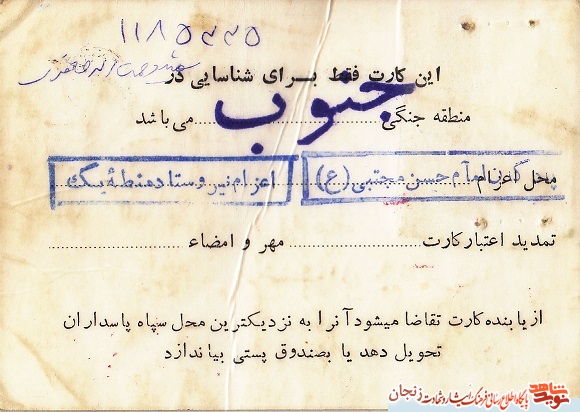 ۱۱۸۵۳۳۵
این کارت فقط برای شناسایی در
منطقه جنگی جنوب می باشد
محل اعزام امام حسن مجتبی (ع) اعزام نیرو ستاد منطقه یک
تمدید اعتبار کارت مهر و امضاء
از یابنده کارت تقاضا میشود آنرا به نزدیکترین محل سپاه پاسداران
تحویل دهد یا بصندوق پستی بیاندازد
نوید شاهد پایگاه اطلاع رسانی فرهنگ ایثار و شهادت زنجان